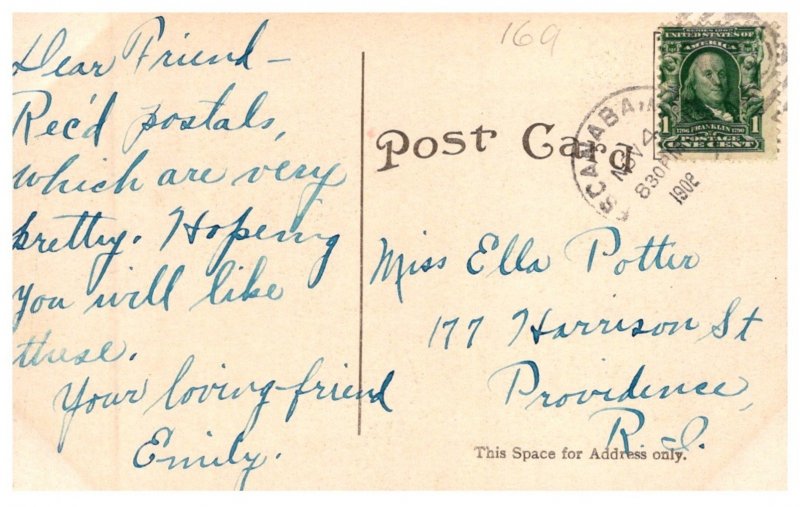 Dear Friend—
Rec'd postals,
which are very
pretty. Hopeing
you will like
these.
Your loving friend
Emily.
169
Post Card
ESCANABA, M
NOV 4
830 PM
1908
SERIES 1902
UNITED STATES OF
AMERICA
1 1
1706 FRANKLIN 1790
POSTAGE
ONE CENT
Miss Ella Potter
177 Harrison St
Providence,
R.I.
This Space for Address only.